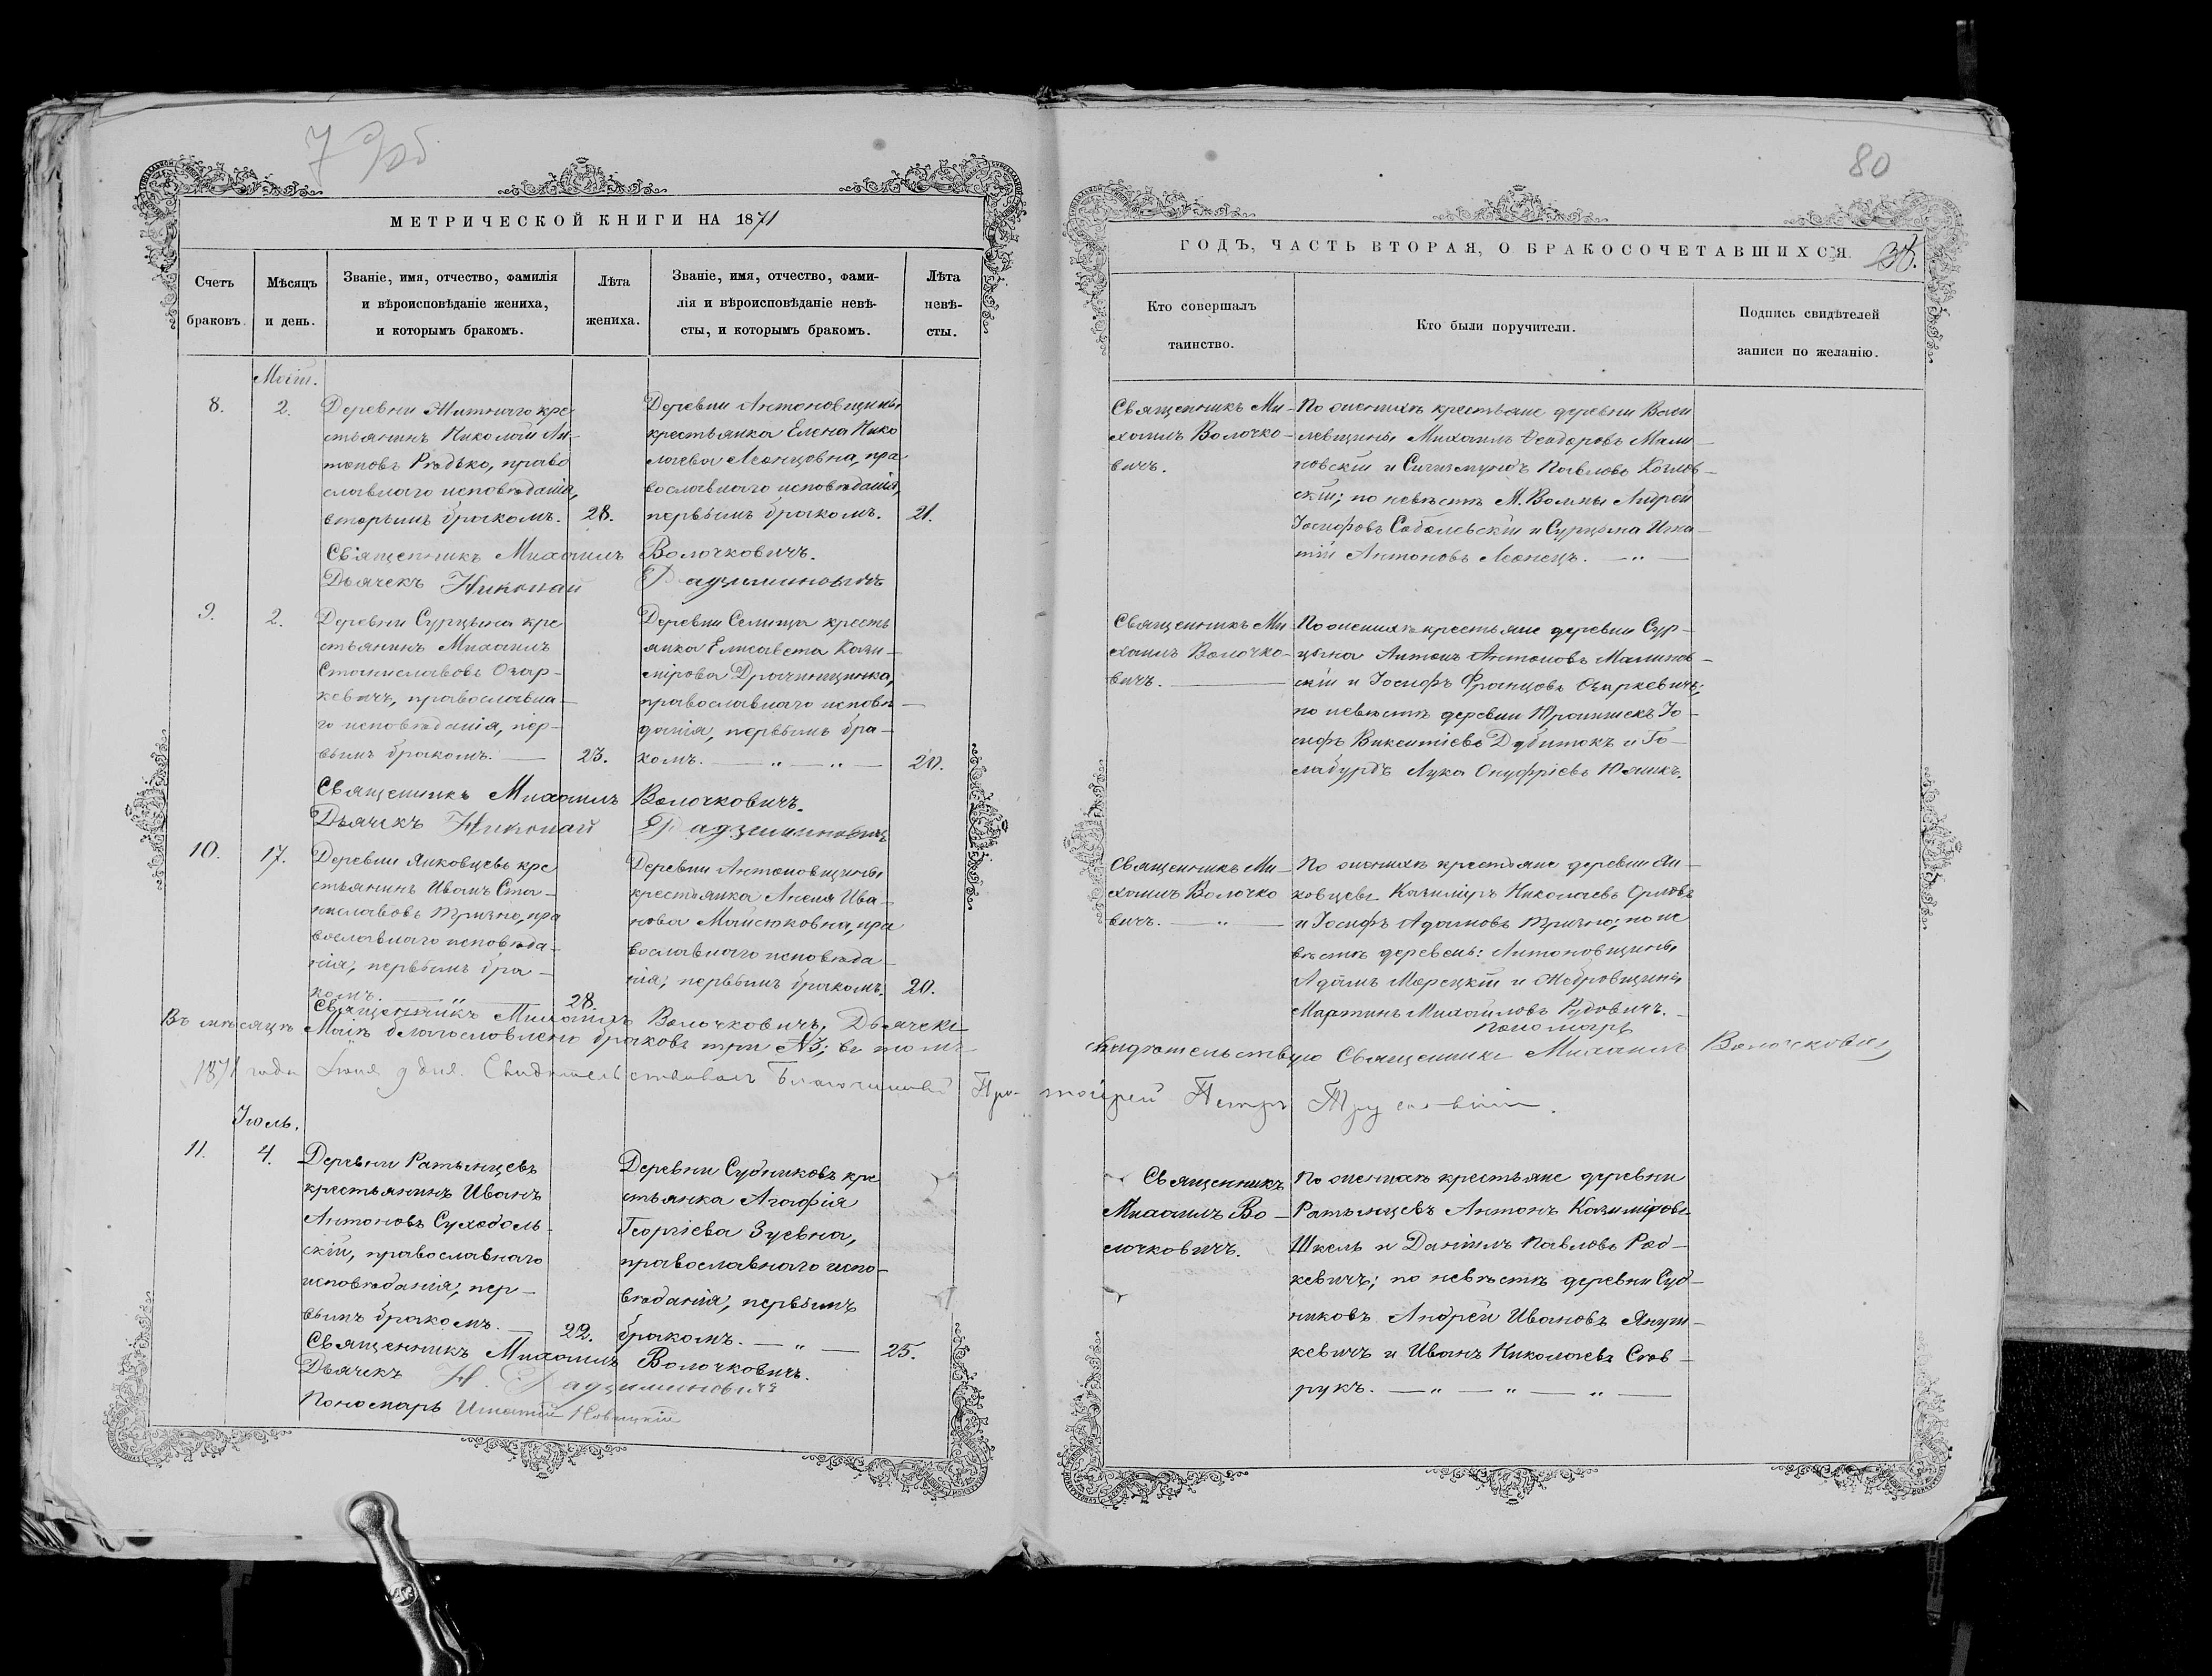 80
МЕТРИЧЕСКОЙ КНИГИ НА 1871
ГОДЪ, ЧАСТЬ ВТОРАЯ, О БРАКОСОЧЕТАВШИХСЯ.
Счетъ браковъ.
Мѣсяцъ и день.
Званіе, имя, отчество, фамилія
и вѣроисповѣданіе жениха,
и которымъ бракомъ.
Лѣта
жениха.
Званіе, имя, отчество, фами-
лія и вѣроисповѣданіе невѣ-
сты, и которымъ бракомъ.
Лѣта
невѣ-
сты.
Кто совершалъ
таинство.
Кто были поручители.
Подпись свидѣтелей
записи по желанію.
8.
2.
Деревни Житнаго кре
стьянинъ Николай Ан-
тоновъ Рэдько, право
славнаго исповѣданія,
вторымъ бракомъ.
28.
Деревни Антоновщины
крестьянка Елена Нико
лаева Леонцовна, пра
вославнаго исповѣданія,
первымъ бракомъ.
21.
Священникъ Ми-
хаилъ Волочко-
вичъ.
По женихѣ крестьяне деревни Васи
левщины Михаилъ Ѳеодоровъ Мали-
новскій и Сигизмундъ Павловъ Козлов-
скій; по невѣстѣ М. Вольмы Андрей
Іосифовъ Соболевскій и Сурцына Игна
тій Антоновъ Леонецъ.
Священникъ Михаилъ Волочковичъ.
Дьячекъ Николай Радзиминовичъ
9.
2.
Деревни Сурцына кре
стьянинъ Михаилъ
Станиславовъ Озар-
кевичъ, православна-
го исповѣданія, пер-
вымъ бракомъ.
23.
Деревни Селища кресть
янка Елисавета Кази-
мірова Драчинщинка,
православнаго исповѣ-
данія, первымъ бра-
комъ.
20.
Священникъ Ми-
хаилъ Волочко-
вичъ.
По женихѣ крестьяне деревни Сур-
цына Антонъ Антоновъ Малинов-
скій и Іосифъ Францовъ Озаркевичъ;
по невѣстѣ деревни Юранишекъ Іо-
сифъ Викентіевъ Дубитокъ и Го-
лабурдъ Лука Онуфріевъ Юхникъ.
Священникъ Михаилъ Волочковичъ.
Дьячекъ Николай Радзиминовичъ
10.
17.
Деревни Янковцевъ кре
стьянинъ Иванъ Ста-
ниславовъ Тричко, пра
вославнаго исповѣда-
нія, первымъ бра-
комъ.
28.
Деревни Антоновщины
крестьянка Анеля Ива-
нова Майсюковна, пра
вославнаго исповѣда-
нія, первымъ бракомъ.
20.
Священникъ Ми-
хаилъ Волочко
вичъ.
По женихѣ крестьяне деревни Ян-
ковцевъ Казиміръ Николаевъ Орловъ
и Іосифъ Адамовъ Тричко; по не
вѣстѣ деревень: Антоновщины
Адамъ Морецкій и Жебровщины
Мартинъ Михайловъ Рудовичъ.
Священникъ Михаилъ Волочковичъ, Дьячекъ
Пономарь
Въ мѣсяцѣ Маіѣ благословлено браковъ три №3; въ томъ
свидѣтельствую Священникъ Михаилъ Волочковичъ
1871 года Іюня 9 дня. Свидѣтельствовалъ Благочинный Протоіерей Петръ
Іюль.
11.
4.
Деревни Ратынцевъ
крестьянинъ Иванъ
Антоновъ Суходоль-
скій, православнаго
исповѣданія, пер-
вымъ бракомъ.
22.
Деревни Судниковъ кре
стьянка Агафія
Георгіева Зуевна,
православнаго испо-
вѣданія, первымъ
бракомъ.
25.
Священникъ
Михаилъ Во-
лочковичъ.
По женихѣ крестьяне деревни
Ратынцевъ Антонъ Казиміровъ
Шкель и Даніилъ Павловъ Род-
кевичъ; по невѣстѣ деревни Суд-
никовъ Андрей Ивановъ Януш-
кевичъ и Иванъ Николаевъ Сов-
рукъ.
Священникъ Михаилъ Волочковичъ.
Дьячекъ Н. Радзиминовичъ
Пономарь Игнатій Новицкій